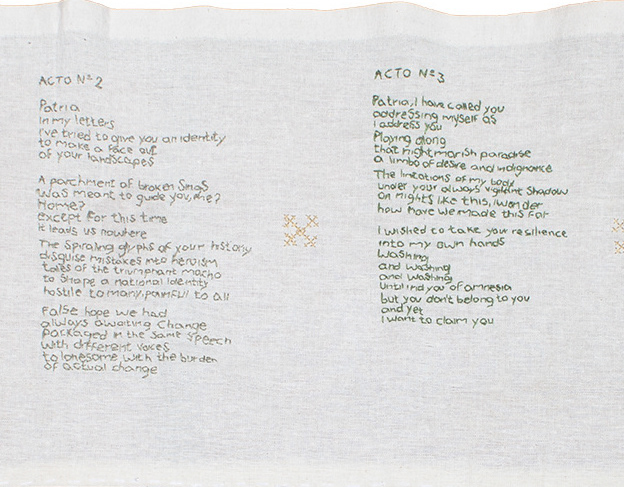 ACTO Nº2
Patria
in my letters
I've tried to give you an identity
to make a face out
of your landscapes
A parchment of broken
was meant to guide you, me?
Home?
except for this time
it leads us nowhere
The spiraling glyphs of your history
disguise mistakes into heroism
tales of the triumphant macho
to shape a national identity
hostile to many, painful to all
False hope we had
always awaiting change
packaged in the same speech
with different voices
to lonesome, with the burden
of actual change
ACTO Nº3
Patria, I have called you
addressing myself as
I address you
Playing along
that nightmarish paradise
a limbo of desire and indignance
The limitations of my body
under your always vigilant shadow
on nights like this, I wonder
how have we made this far
I wished to take your resilience
into my own hands
Washing
and washing
and washing
until ind you of amnesia
but you don't belong to you
and yet
I want to claim you